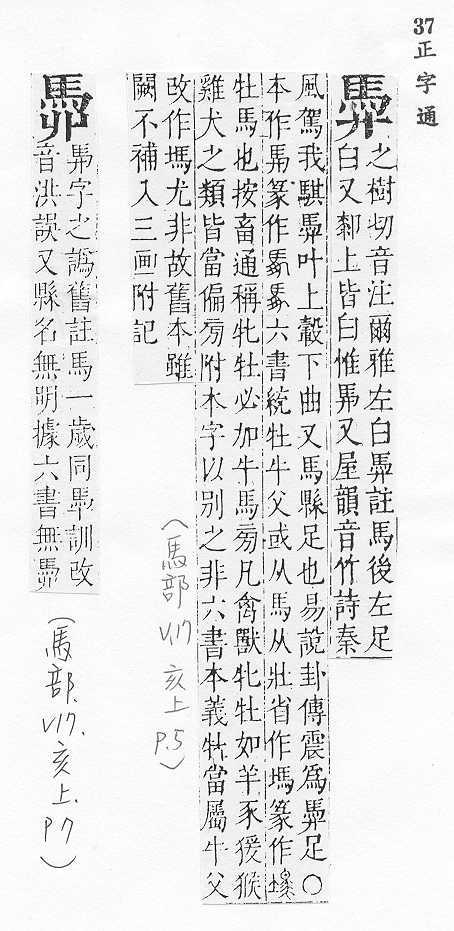 37 正字通
馵
之樹切音注爾雅左白馵註馬後左足
白又厀上皆白惟馵又屋韻音竹詩秦
風駕我騏馵叶上轂下曲又馬縣足也易說卦傳震爲馵足○
本作馵篆作六書統牡牛父或从馬从壯省作篆作
牡馬也按畜通稱牝牡必加牛馬旁凡禽獸牝牡如羊豕猨猴
雞犬之類皆當偏旁附本字以别之非六書本義牡當屬牛父
改作尤非故舊本雖
闕不補入三画附記
(馬部 V17 亥上 P.5)
字之譌舊註馬一歲同訓改
音洪誤又縣名無明據六書無
(馬部. V17. 亥上. P7)